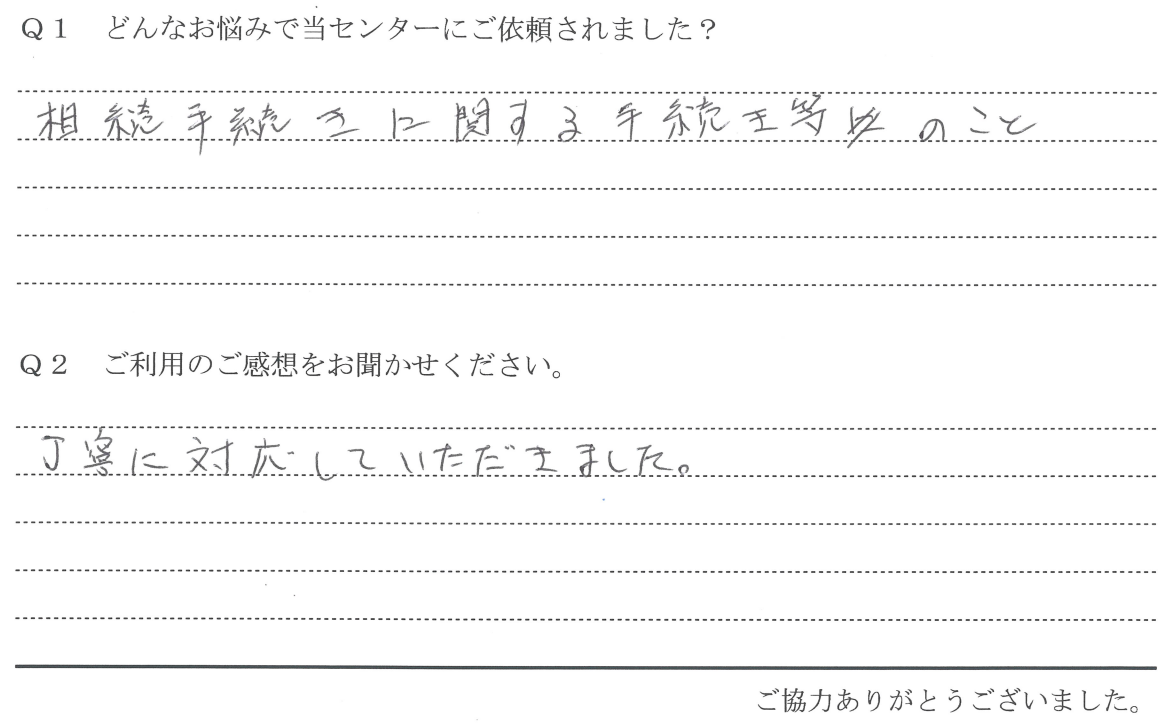 Q1 どんなお悩みで当センターにご依頼されました?
相続手続きに関する手続き等のこと
Q2 ご利用のご感想をお聞かせください。
丁寧に対応していただきました。
ご協力ありがとうございました。